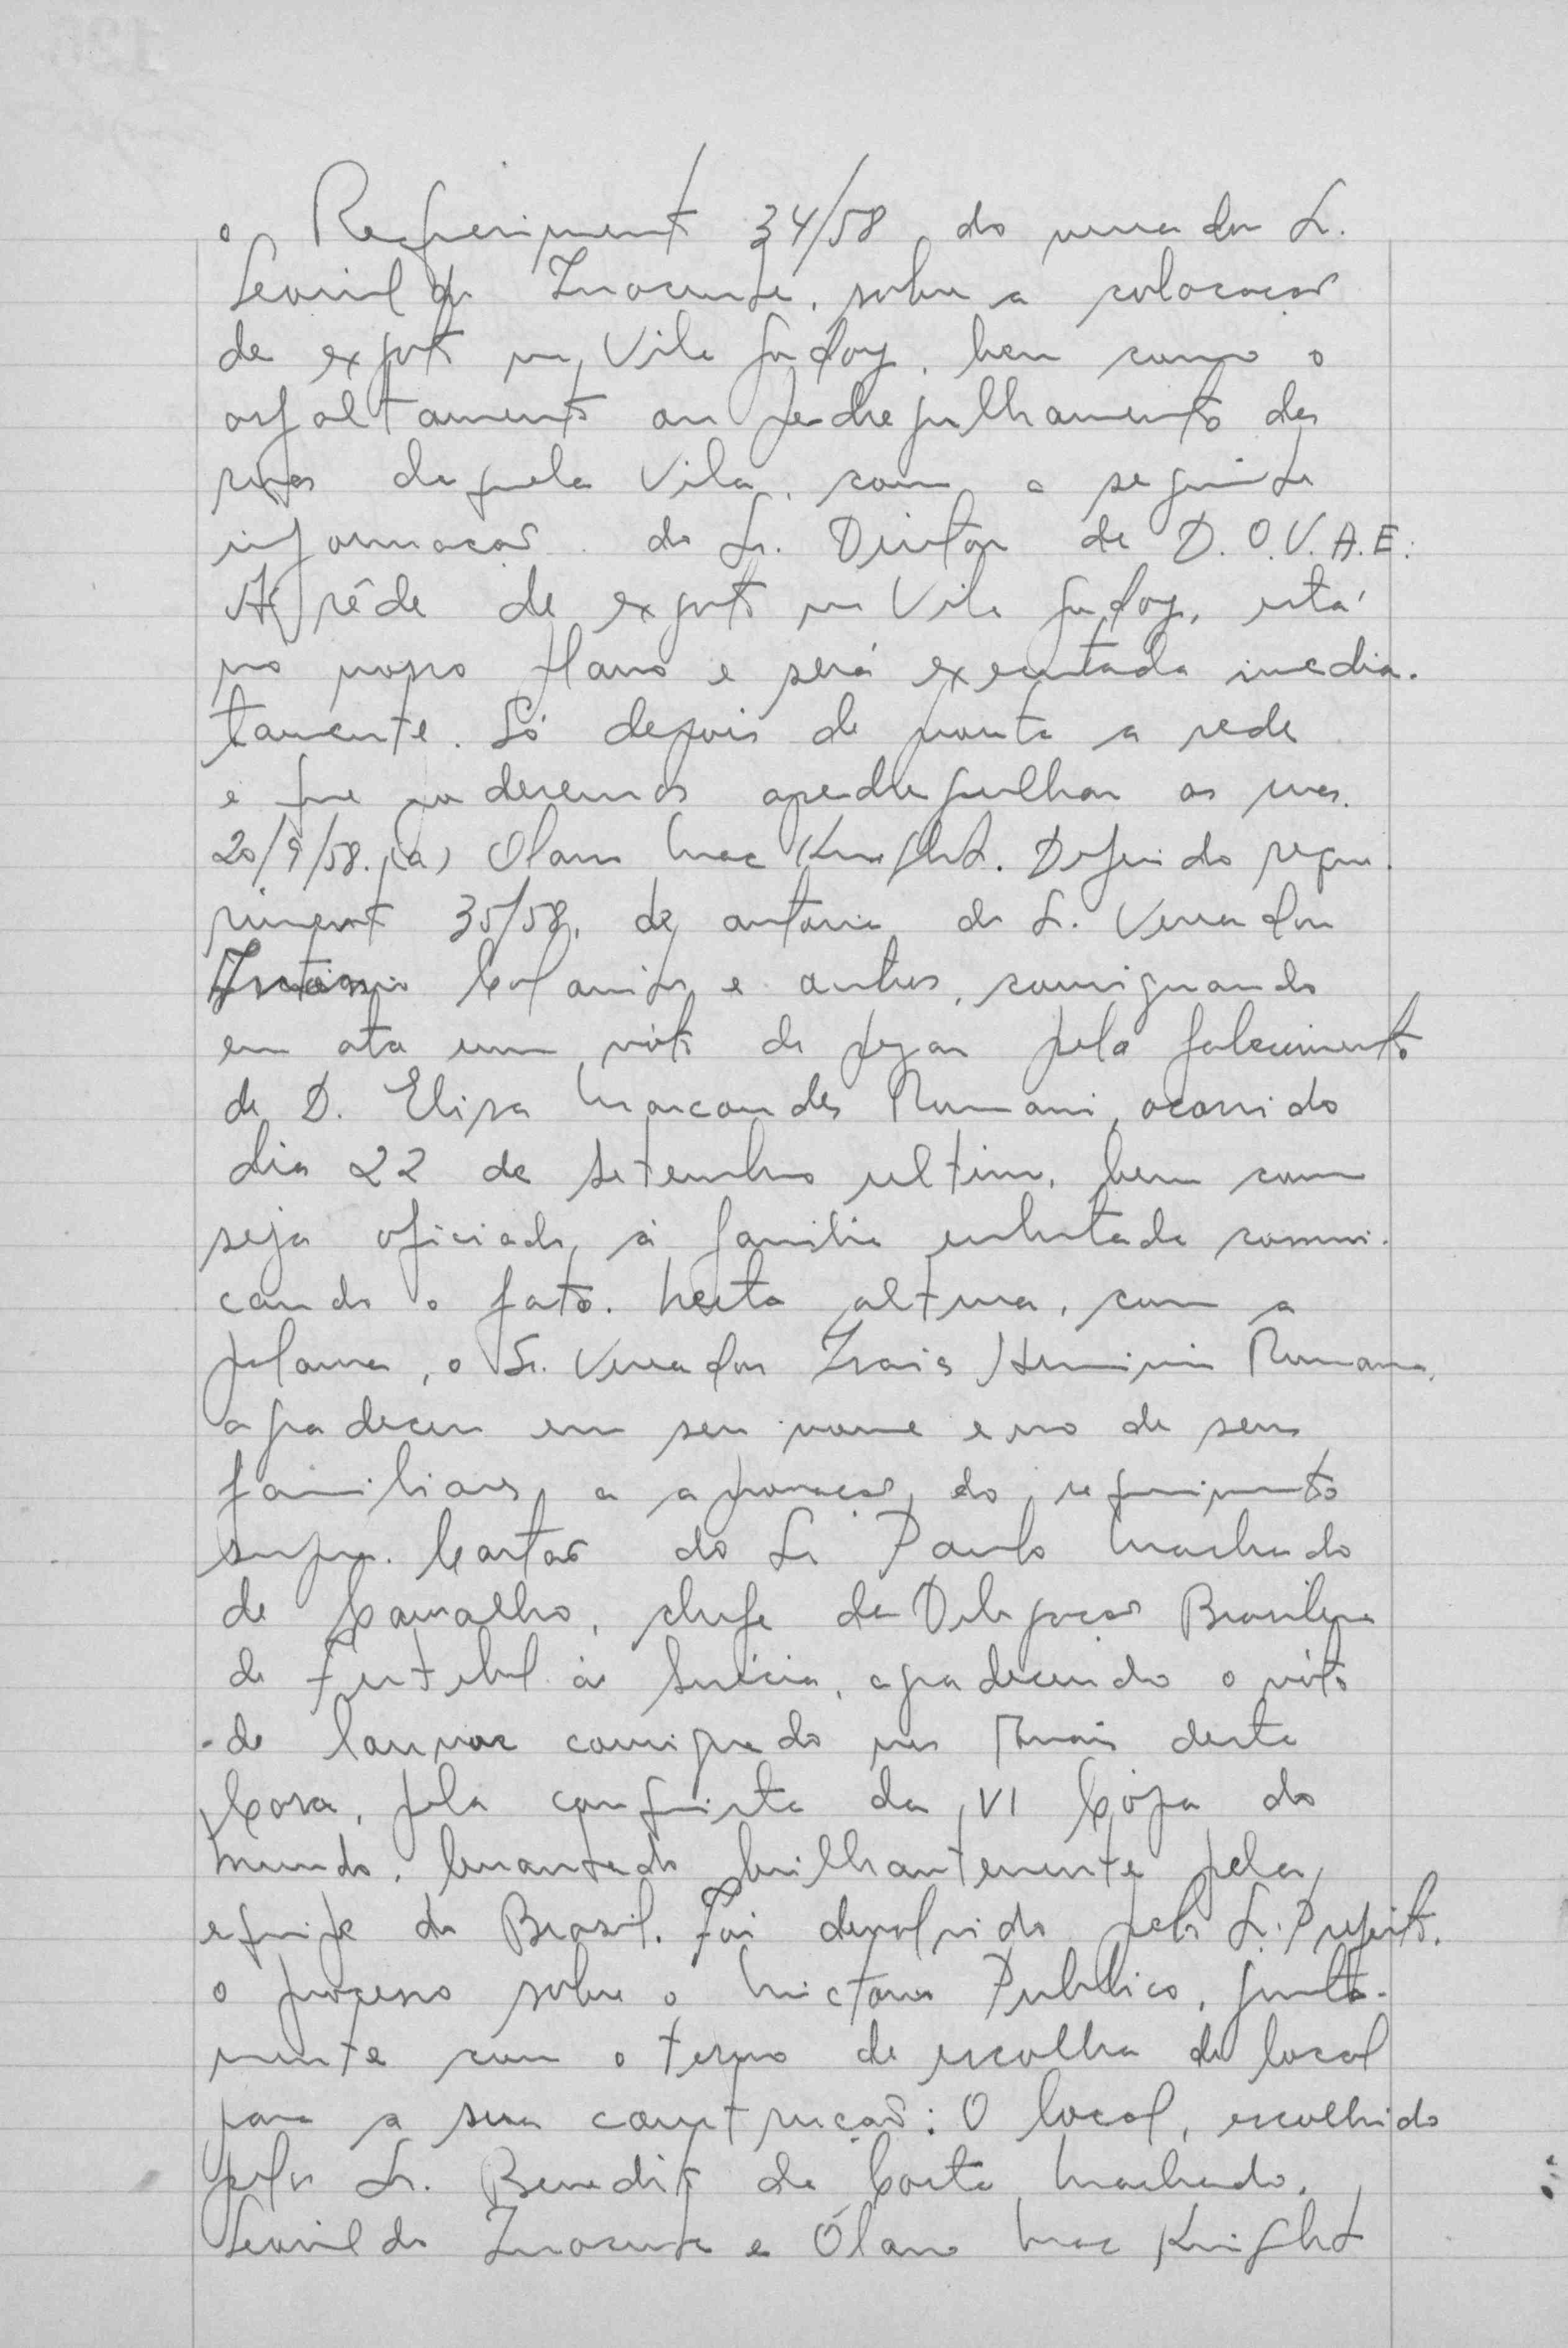 o Requerimento 34/58, do vereador Sr.
Leonildo Inocente, sobre a colocação
de exgoto na Vila Godoy, bem como o
asfaltamento ou pedregulhamento das
ruas daquela Vila, com a seguinte
informação do Sr. Diretor de D.O.V.A.E:
A rêde de exgoto na Vila Godoy, está
no nosso plano e será executada imedia-
tamente. Só depois de pronta a rede
é que poderemos apedregulhar as ruas.
20/9/58. (a) Olavo Mac Knight. Deferido reque-
rimento 35/58, de autoria do Sr. Vereador
e outros, consignando
em ata um vóto de pezar pelo falecimento
de D. Elisa Marcondes Romano, ocorrido
dia 22 de setembro ultimo, bem como
seja oficiado á familia enlutada comuni-
cando o fato. Nesta altura, com a
palavra, o Sr. Vereador Romano,
agradeceu em seu nome e no de seus
familiares a aprovação do requerimento
supra. Cartão do Sr Paulo Machado
de Carvalho, chefe da Delegação Brasileira
de Futebol á Suécia, agradecendo o vóto
de louvor consignado nos Anais desta
Casa, pela conquista da VI Cópa do
Mundo, levantada brilhantemente pela
equipe do Brasil. Foi devolvido pelo Sr. Prefeito,
o processo sobre o Mictorio Publico, junta-
mente com o termo de escolha do local
para a sua construção: O local, escolhido
pelos Sr. Benedito da Costa Machado,
Leonildo Inocente e Ólavo Mac Knight